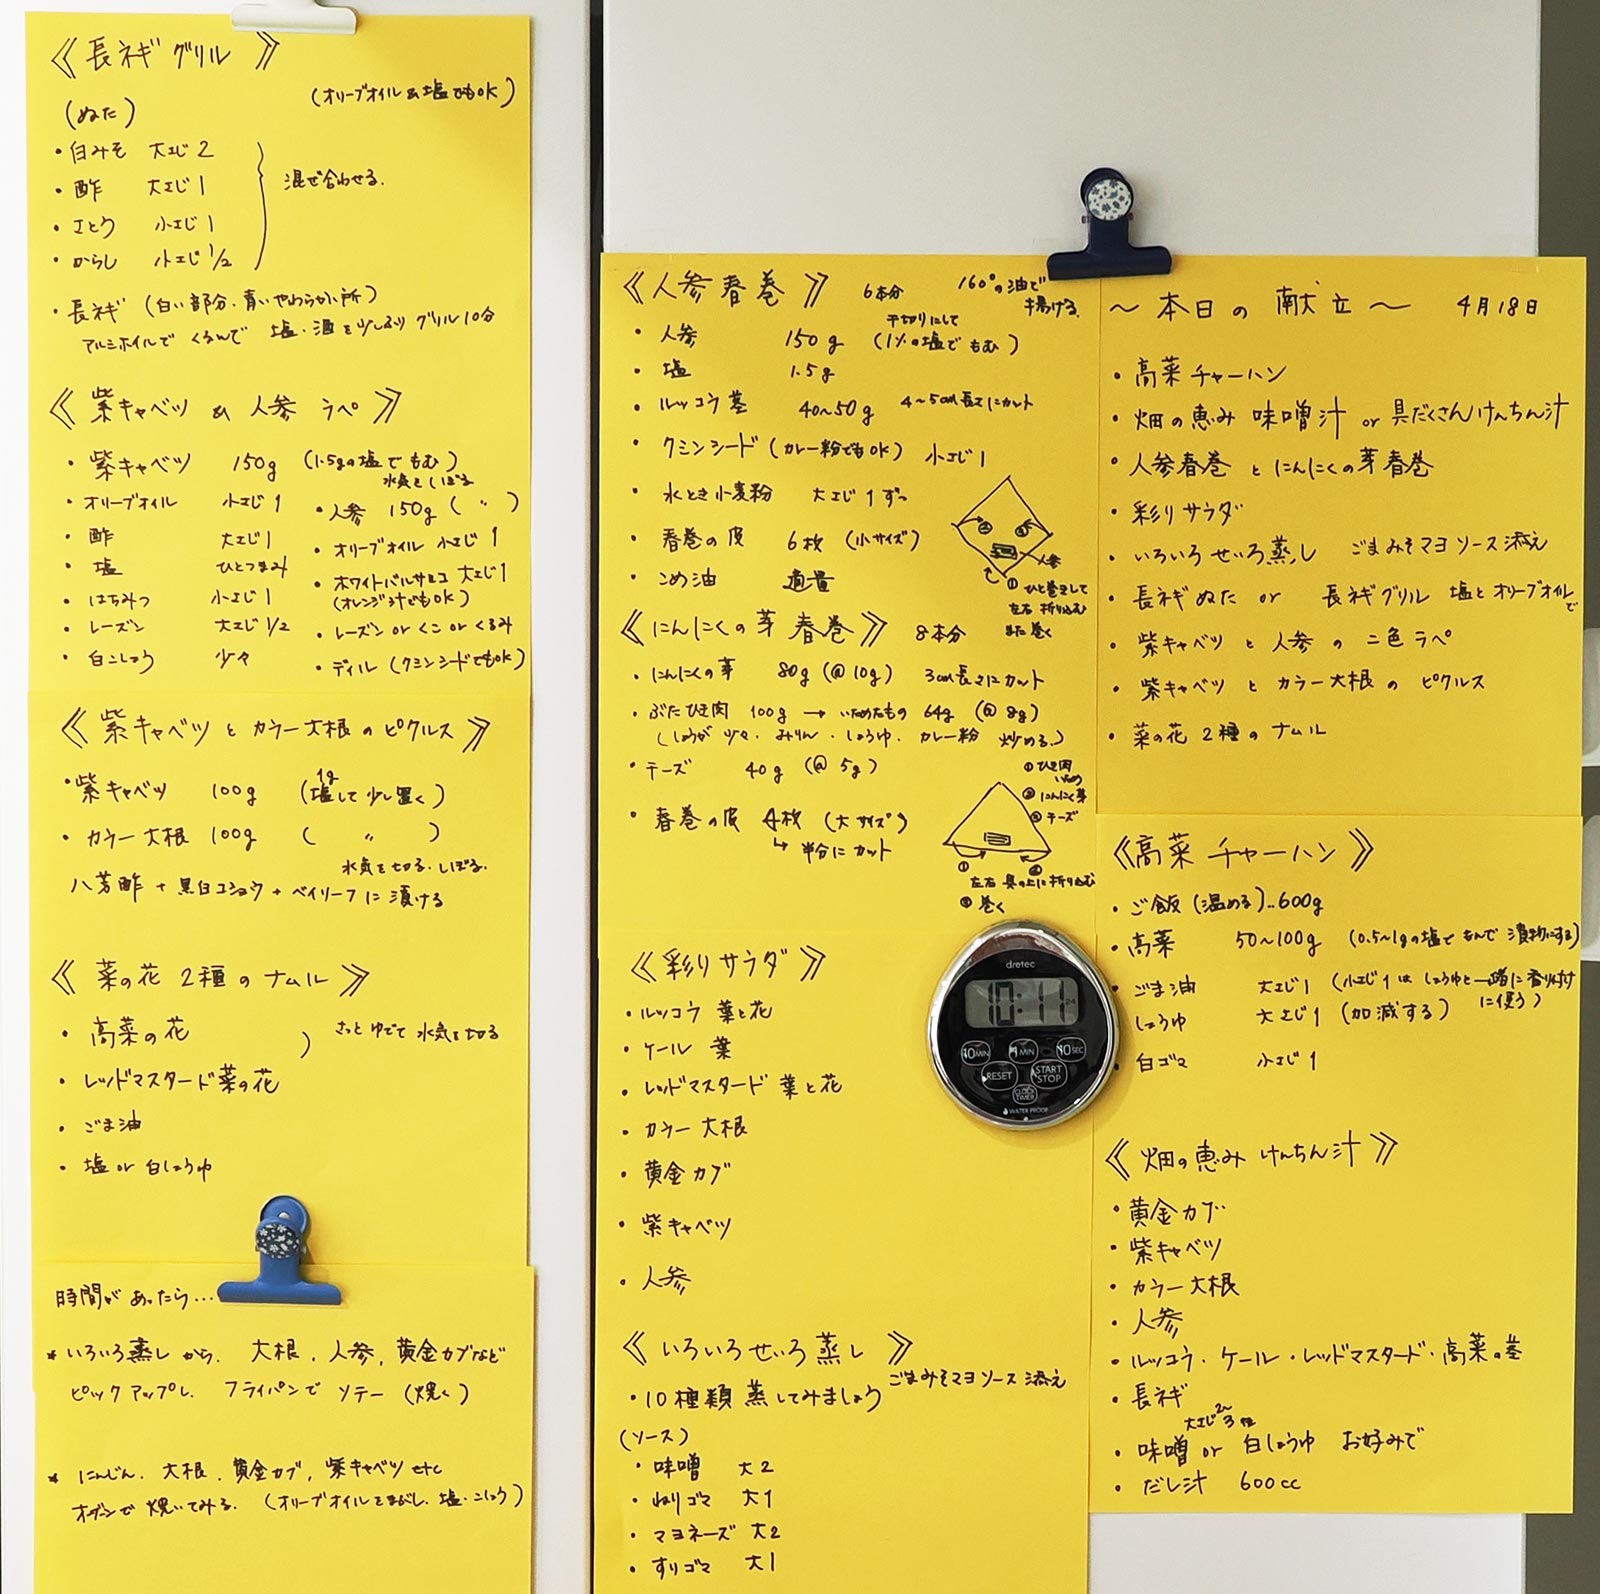 《長ネギ グリル》
(オリーブオイル & 塩でもOK)
(ぬた)
・白みそ 大さじ 2
・酢 大さじ 1
・さとう 小さじ 1
・からし 小さじ 1/2
混ぜ合わせる。
・長ネギ (白い部分・青いやわらかい所)
アルミホイルで くるんで 塩・酒を少しふり グリル10分
《紫キャベツ & 人参 ラペ》
・紫キャベツ 150g (1.5gの塩でもむ)
水気をしぼる
・オリーブオイル 小さじ 1
・酢 大さじ 1
・塩 ひとつまみ
・はちみつ 小さじ 1
・レーズン 大さじ 1/2
・白こしょう 少々
・人参 150g ( 〃 )
・オリーブオイル 小さじ 1
・ホワイトバルサミコ 大さじ 1
(オレンジ汁でもOK)
・レーズン or くこ or くるみ
・ディル (クミンシードでもOK)
《紫キャベツ と カラー大根 の ピクルス》
・紫キャベツ 100g (塩して 少し置く)
1g
・カラー大根 100g ( 〃 )
水気を切る・しぼる。
八芳酢 + 黒白コショウ + ベイリーフ に 漬ける
《菜の花 2種 の ナムル》
・高菜の花
・レッドマスタード菜の花
さっと ゆでて 水気を切る
・ごま油
・塩 or 白しょうゆ
時間が あったら…
* いろいろ蒸し から、大根、人参、黄金カブなど
ピックアップし、フライパンで ソテー (焼く)
* にんじん、大根、黄金カブ、紫キャベツ etc
オーブンで 焼いてみる。 (オリーブオイルをまがし、塩・こしょう)
《人参春巻》 6本分 160°の油で
揚げる。
千切りにして
・人参 150g (1%の塩でもむ)
・塩 1.5g
・ルッコラ 茎 40〜50g 4〜5cm長さにカット
・クミンシード (カレー粉でもOK) 小さじ 1
・水とき小麦粉 大さじ 1ずつ
・春巻の皮 6枚 (小サイズ)
・こめ油 適量
人参
① ひと巻きして
左右 折り込む
また 巻く
《にんにくの芽 春巻》 8本分
・にんにくの芽 80g (@10g) 3cm長さにカット
・ぶたひき肉 100g → いためたもの 64g (@8g)
(しょうが 少々・みりん・しょうゆ・カレー粉 炒める。)
・チーズ 40g (@5g)
・春巻の皮 4枚 (大サイズ)
↳ 半分にカット
① ひき肉
いため
② にんにく芽
③ チーズ
① ②
左右 具の上に折り込む
③ 巻く
《彩りサラダ》
・ルッコラ 葉と花
・ケール 葉
・レッドマスタード 葉と花
・カラー大根
・黄金カブ
・紫キャベツ
・人参
《いろいろせいろ蒸し》
ごまみそマヨソース添え
・10種類 蒸してみましょう
(ソース)
・味噌 大2
・ねりゴマ 大1
・マヨネーズ 大2
・すりゴマ 大1
dretec
10:11 24
10MIN 1MIN 10SEC
RESET START STOP
CLOCK TIMER
WATER PROOF
〜 本日の 献立 〜 4月18日
・高菜 チャーハン
・畑の恵み 味噌汁 or 具だくさんけんちん汁
・人参春巻 と にんにくの芽春巻
・彩りサラダ
・いろいろせいろ蒸し ごまみそマヨソース添え
・長ネギ ぬた or 長ネギグリル 塩とオリーブオイルで
・紫キャベツ と 人参 の 二色ラペ
・紫キャベツ と カラー大根 の ピクルス
・菜の花 2種 の ナムル
《高菜 チャーハン》
・ご飯 (温める)‥600g
・高菜 50〜100g (0.5〜1gの塩でもんで 漬物にする)
・ごま油 大さじ 1 (小さじ1は しょうゆと一緒に香り付け
に使う)
・しょうゆ 大さじ 1 (加減する)
・白ゴマ 小さじ 1
《畑の恵み けんちん汁》
・黄金カブ
・紫キャベツ
・カラー大根
・人参
・ルッコラ・ケール・レッドマスタード・高菜の茎
・長ネギ
大さじ 2〜3位
・味噌 or 白しょうゆ お好みで
・だし汁 600cc